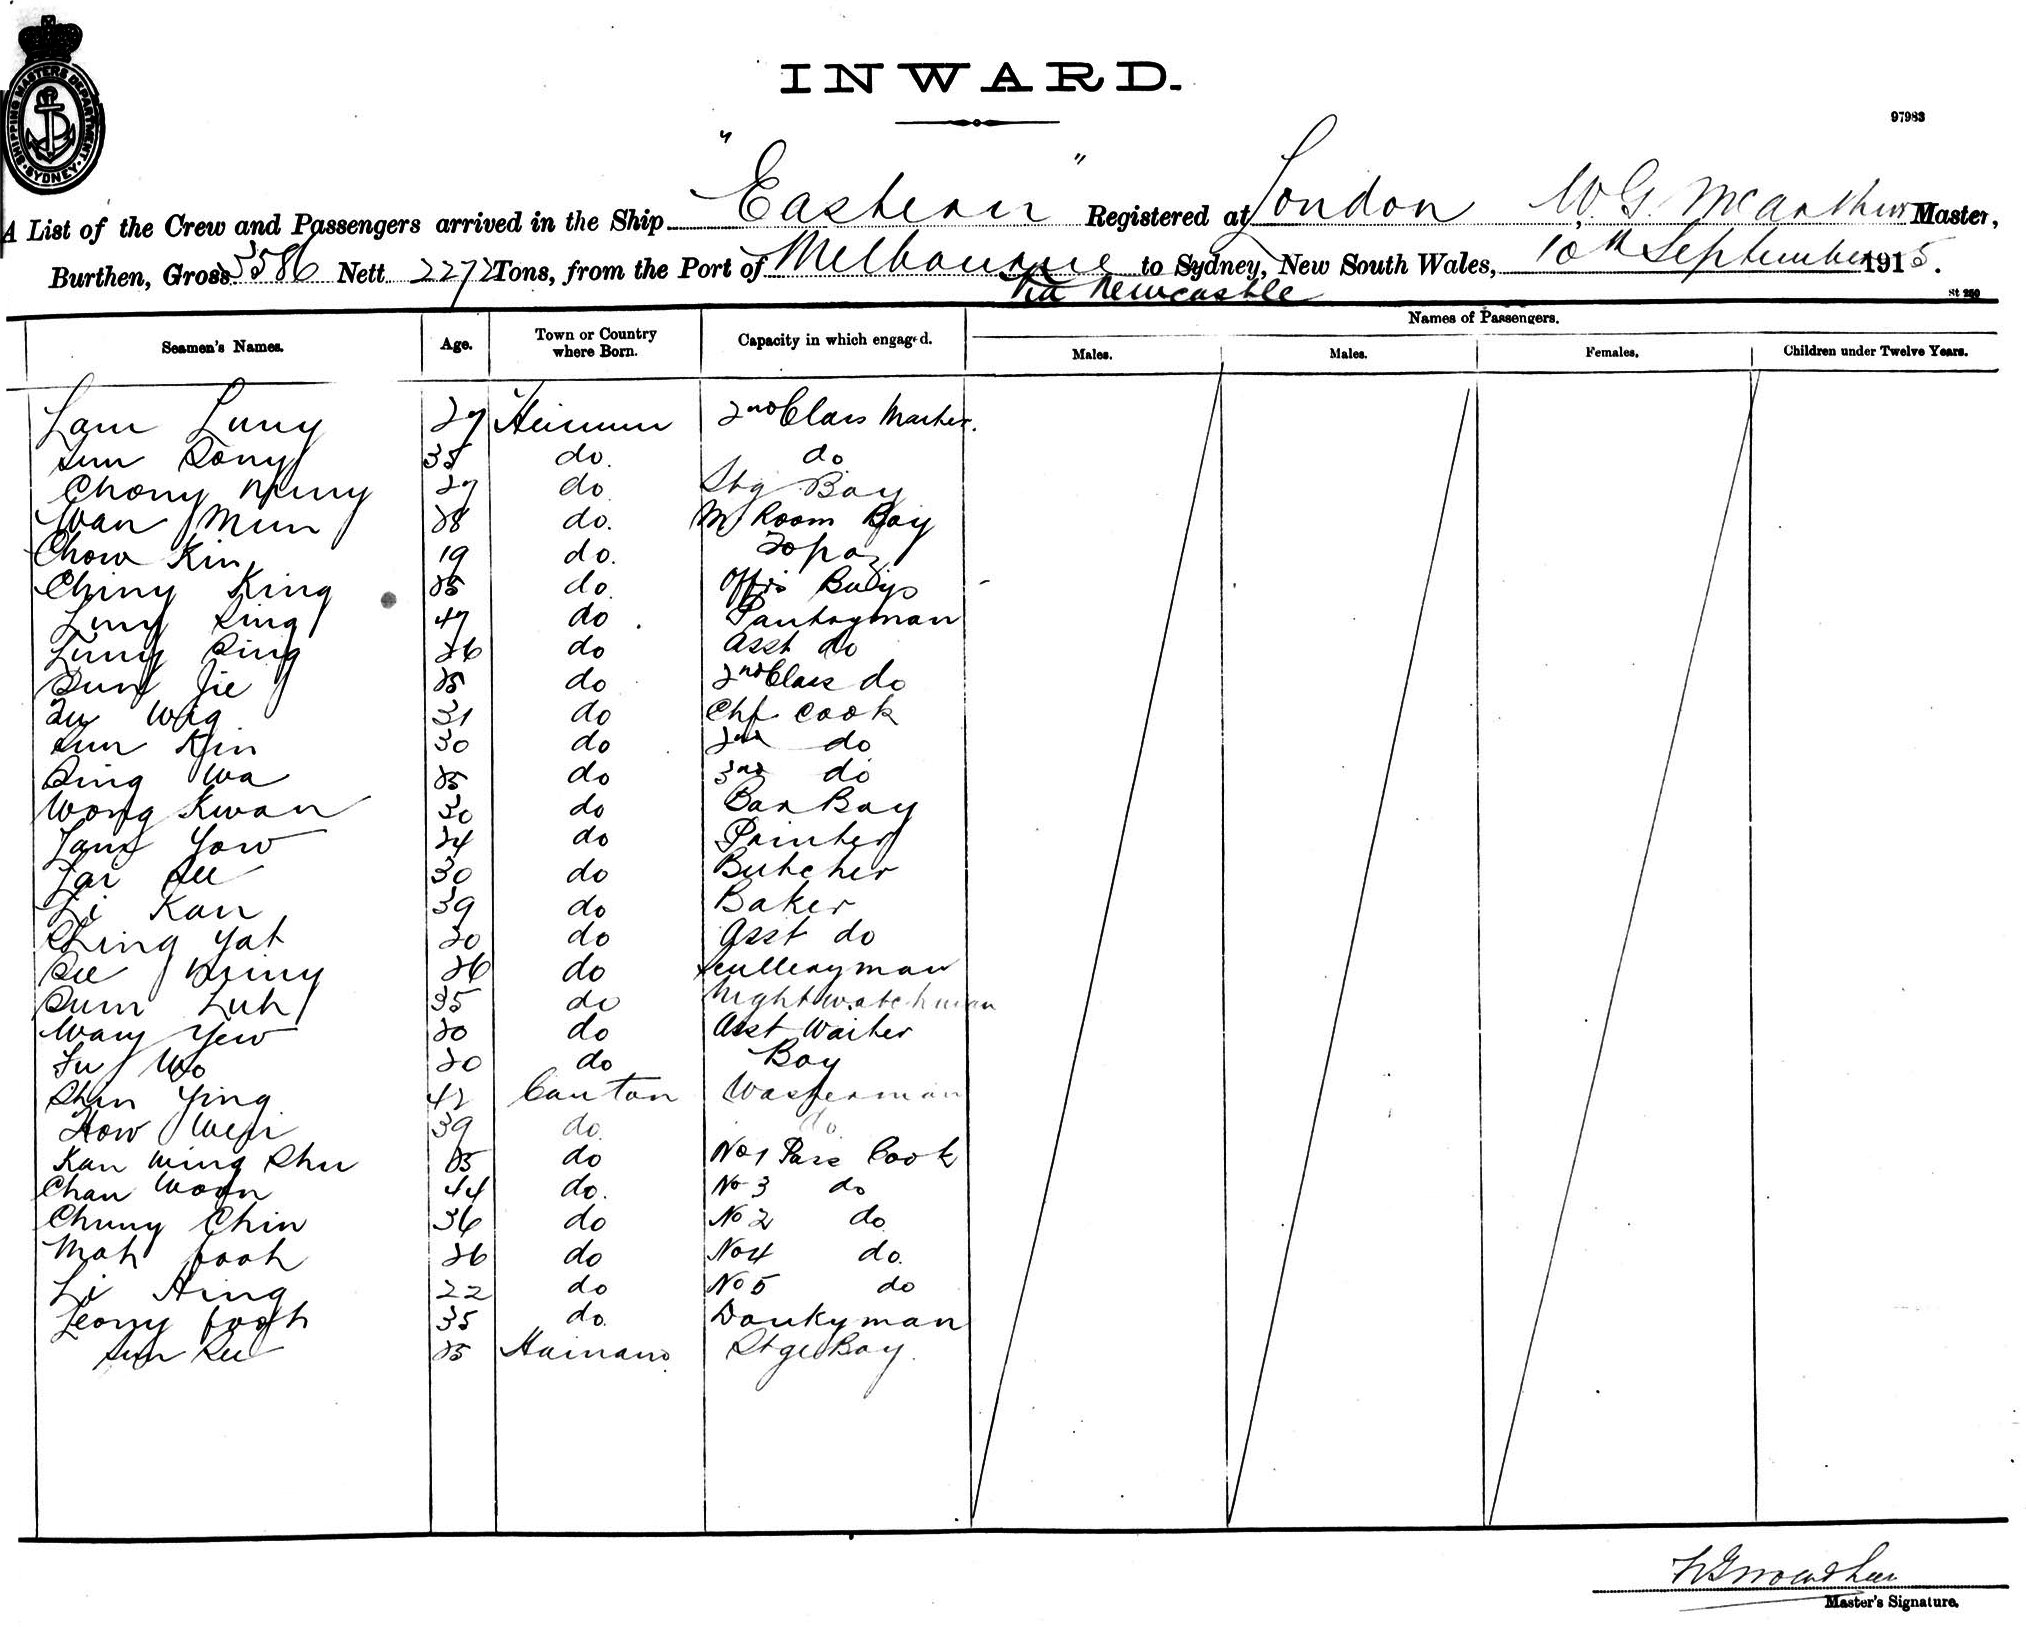 SHIPPING MASTERS DEPARTMENT
SYDNEY
INWARD.
97983
A List of the Crew and Passengers arrived in the Ship "Eastern" Registered at London W. G. McArthur Master,
Burthen, Gross 3586 Nett 2272 Tons, from the Port of Melbourne to Sydney, New South Wales, 10th September 1915.
Via Newcastle
St 250
Seamen's Names. Age. Town or Country where Born. Capacity in which engaged. Names of Passengers.
Males. Males. Females. Children under Twelve Years.
Lam Lung 27 2nd Class Waiter.
Sun Song 35 do. do
Chong 27 do Stg Boy
Wan Mun 28 do. M Room Boy
Chow Kin 19 do. Topaz
Ching King 25 do. Offrs Boys
Ling Sing 47 do Pantryman
Lung Sing 26 do Asst do
Sun Jie 25 do 2nd Class do
31 do Chf Cook
Sun Kin 30 do 2nd do
Sing Wa 25 do 3rd do
Wong Kwan 30 do Bar Boy
Yow 24 do Printer
Tai See 30 do Butcher
Li Kan 39 do Baker
Ching Yat 20 do Asst do
See 26 do Sculleryman
Sum Luk 35 do Nightwatchman
Wang Yew 20 do Asst Waiter
Fu Wo 20 do Boy
Shin Ying 42 Canton Washerman
How 39 do. do.
Kan Wing Shu 25 do No 1 Pass Cook
Chan Woon 44 do. No 3 do
Chung Chin 36 do No 2 do
Mah Fook 26 do No 4 do.
Li Hing 22 do No 5 do
Leong Fook 35 do. Donkyman
Sun See 25 Hainano Stge Boy.
Master's Signature.